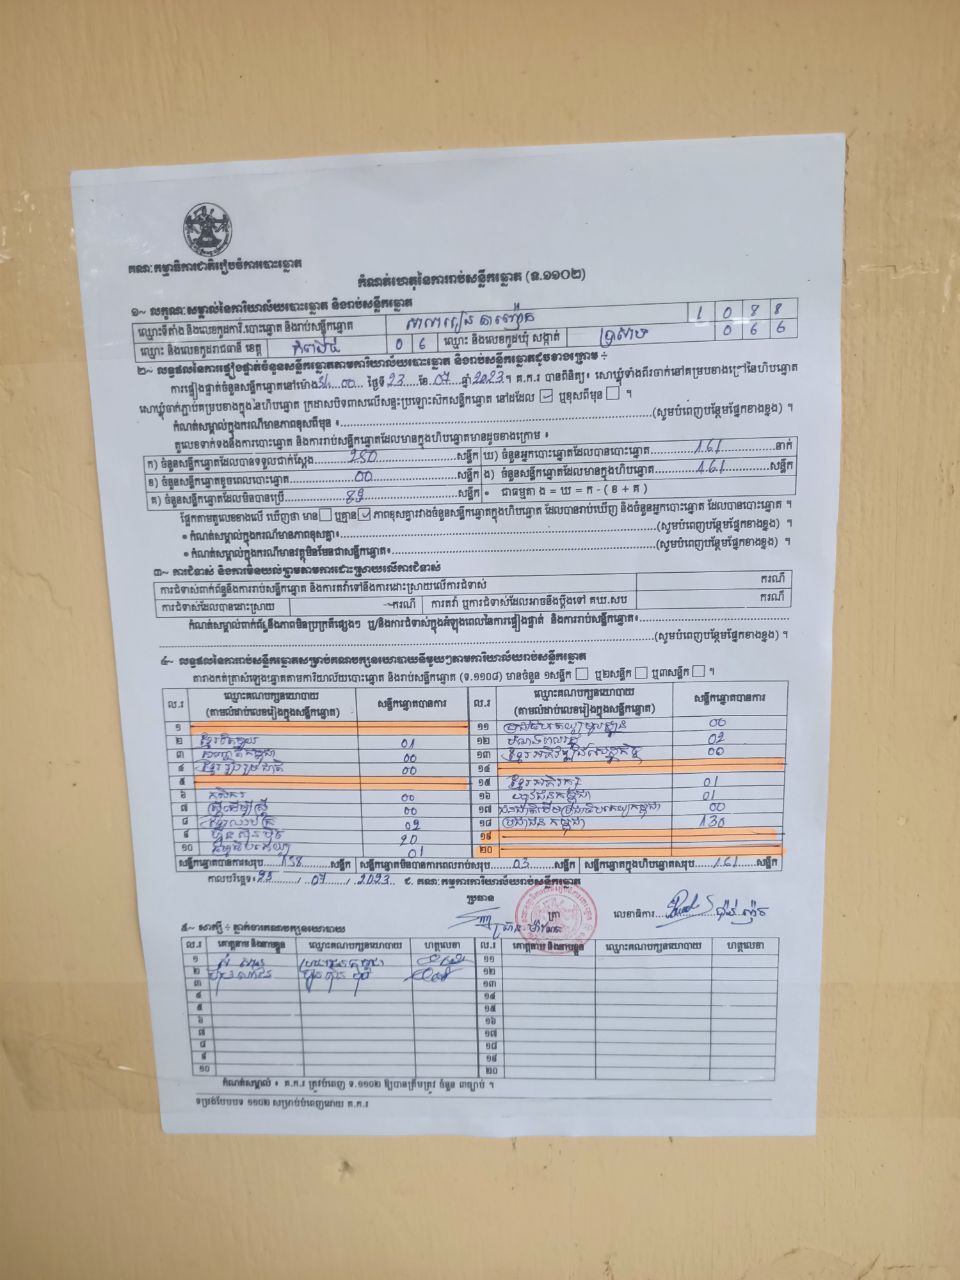 គណៈកម្មាធិការជាតិរៀបចំការបោះឆ្នោត
កំណត់ហេតុនៃការរាប់សន្លឹកឆ្នោត (ទ.១១០២)
១~ លក្ខណៈសម្គាល់នៃការិយាល័យបោះឆ្នោត និងរាប់សន្លឹកឆ្នោត
ឈ្មោះទីតាំង និងលេខកូដការិ.បោះឆ្នោត និងរាប់សន្លឹកឆ្នោត សាលារៀន 1 0 8 8
ឈ្មោះ និងលេខកូដរាជធានី ខេត្ត កំពង់ធំ 0 6 ឈ្មោះ និងលេខកូដឃុំ សង្កាត់ 0 6 6
២~ លទ្ធផលនៃការផ្ទៀងផ្ទាត់ចំនួនសន្លឹកឆ្នោតតាមការិយាល័យបោះឆ្នោត និងរាប់សន្លឹកឆ្នោតដូចខាងក្រោម ÷
ការផ្ទៀងផ្ទាត់ចំនួនសន្លឹកឆ្នោតនៅម៉ោង 00 ថ្ងៃទី 23 ខែ 07 ឆ្នាំ 2023 ។ គ.ក.រ បានពិនិត្យ សោឃ្លុំទាំងពីរចាក់នៅគម្របខាងក្រៅនៃហិបឆ្នោត
សោឃ្លុំចាក់ភ្ជាប់គម្របខាងក្នុងនៃហិបឆ្នោត ក្រដាសបិទពាសលើសន្ទះប្រឡោះសិកសន្លឹកឆ្នោត នៅដដែល ☑ ឬខុសពីមុន ☐ ។
កំណត់សម្គាល់ក្នុងករណីមានភាពខុសពីមុន ៖ (សូមបំពេញបន្ថែមផ្នែកខាងខ្នង) ។
តួលេខទាក់ទងនឹងការបោះឆ្នោត និងការរាប់សន្លឹកឆ្នោតដែលមានក្នុងហិបឆ្នោតមានដូចខាងក្រោម ៖
ក) ចំនួនសន្លឹកឆ្នោតដែលបានទទួលជាក់ស្តែង 250 សន្លឹក ឃ) ចំនួនអ្នកបោះឆ្នោតដែលបានបោះឆ្នោត 161 នាក់
ខ) ចំនួនសន្លឹកឆ្នោតខូចពេលបោះឆ្នោត 00 សន្លឹក ង) ចំនួនសន្លឹកឆ្នោតដែលមានក្នុងហិបឆ្នោត 161 សន្លឹក
គ) ចំនួនសន្លឹកឆ្នោតដែលមិនបានប្រើ 89 សន្លឹក • ជាធម្មតា ង = ឃ = ក - ( ខ + គ )
ផ្អែកតាមតួលេខខាងលើ ឃើញថា មាន ☐ ឬគ្មាន ☑ ភាពខុសគ្នារវាងចំនួនសន្លឹកឆ្នោតក្នុងហិបឆ្នោត ដែលបានរាប់ឃើញ និងចំនួនអ្នកបោះឆ្នោត ដែលបានបោះឆ្នោត ។
• កំណត់សម្គាល់ក្នុងករណីមានភាពខុសគ្នា៖ (សូមបំពេញបន្ថែមផ្នែកខាងខ្នង) ។
• កំណត់សម្គាល់ក្នុងករណីមានវត្ថុមិនមែនជាសន្លឹកឆ្នោត៖ (សូមបំពេញបន្ថែមផ្នែកខាងខ្នង) ។
៣~ ការជំទាស់ និងការមិនយល់ព្រមតាមការដោះស្រាយលើការជំទាស់
ការជំទាស់ពាក់ព័ន្ធនឹងការរាប់សន្លឹកឆ្នោត និងការតវ៉ាទៅនឹងការដោះស្រាយលើការជំទាស់ ករណី
ការជំទាស់ដែលបានដោះស្រាយ ករណី ការតវ៉ា ឬការជំទាស់ដែលអាចនឹងប្តឹងទៅ គឃ.សប ករណី
កំណត់សម្គាល់ពាក់ព័ន្ធនឹងភាពមិនប្រក្រតីផ្សេងៗ ឬ/និងការជំទាស់ក្នុងអំឡុងពេលនៃការផ្ទៀងផ្ទាត់ និងការរាប់សន្លឹកឆ្នោត៖
(សូមបំពេញបន្ថែមផ្នែកខាងខ្នង) ។
៤~ លទ្ធផលនៃការរាប់សន្លឹកឆ្នោតសម្រាប់គណបក្សនយោបាយនីមួយៗតាមការិយាល័យរាប់សន្លឹកឆ្នោត
តារាងកត់ត្រាសំឡេងឆ្នោតតាមការិយាល័យបោះឆ្នោត និងរាប់សន្លឹកឆ្នោត (ទ.១១០៨) មានចំនួន ១សន្លឹក ☐ ឬ២សន្លឹក ☐ ឬ៣សន្លឹក ☐ ។
ល.រ ឈ្មោះគណបក្សនយោបាយ (តាមលំដាប់លេខរៀងក្នុងសន្លឹកឆ្នោត) សន្លឹកឆ្នោតបានការ ល.រ ឈ្មោះគណបក្សនយោបាយ (តាមលំដាប់លេខរៀងក្នុងសន្លឹកឆ្នោត) សន្លឹកឆ្នោតបានការ
១ ១១ 00
២ 01 ១២ 02
៣ 00 ១៣ 00
៤ ខ្មែររួបរួមជាតិ 00 ១៤
៥ ១៥ ខ្មែរអភិរក្ស 01
៦ កសិករ 00 ១៦ យុវជនកម្ពុជា 01
៧ ស្ត្រីដើម្បីស្ត្រី 00 ១៧ 00
៨ 02 ១៨ ប្រជាជនកម្ពុជា 130
៩ ហ៊្វុនស៊ិនប៉ិច 20 ១៩
១០ 01 ២០
សន្លឹកឆ្នោតបានការសរុប 158 សន្លឹក សន្លឹកឆ្នោតមិនបានការពេលរាប់សរុប 03 សន្លឹក សន្លឹកឆ្នោតក្នុងហិបឆ្នោតសរុប 161 សន្លឹក
កាលបរិច្ឆេទ៖ 23 / 07 / 2023 ជ. គណៈកម្មការការិយាល័យរាប់សន្លឹកឆ្នោត
ប្រធាន
លេខាធិការ
៥~ សាក្សី ÷ ភ្នាក់ងារគណបក្សនយោបាយ
ល.រ គោត្តនាម និងនាមខ្លួន ឈ្មោះគណបក្សនយោបាយ ហត្ថលេខា ល.រ គោត្តនាម និងនាមខ្លួន ឈ្មោះគណបក្សនយោបាយ ហត្ថលេខា
១ ប្រជាជនកម្ពុជា ១១
២ ហ៊្វុនស៊ិនប៉ិច ១២
៣ ១៣
៤ ១៤
៥ ១៥
៦ ១៦
៧ ១៧
៨ ១៨
៩ ១៩
១០ ២០
កំណត់សម្គាល់ ៖ គ.ក.រ ត្រូវបំពេញ ទ.១១០២ ឱ្យបានត្រឹមត្រូវ ចំនួន ៣ច្បាប់ ។
ទម្រង់បែបបទ ១១០២ សម្រាប់បំពេញដោយ គ.ក.រ